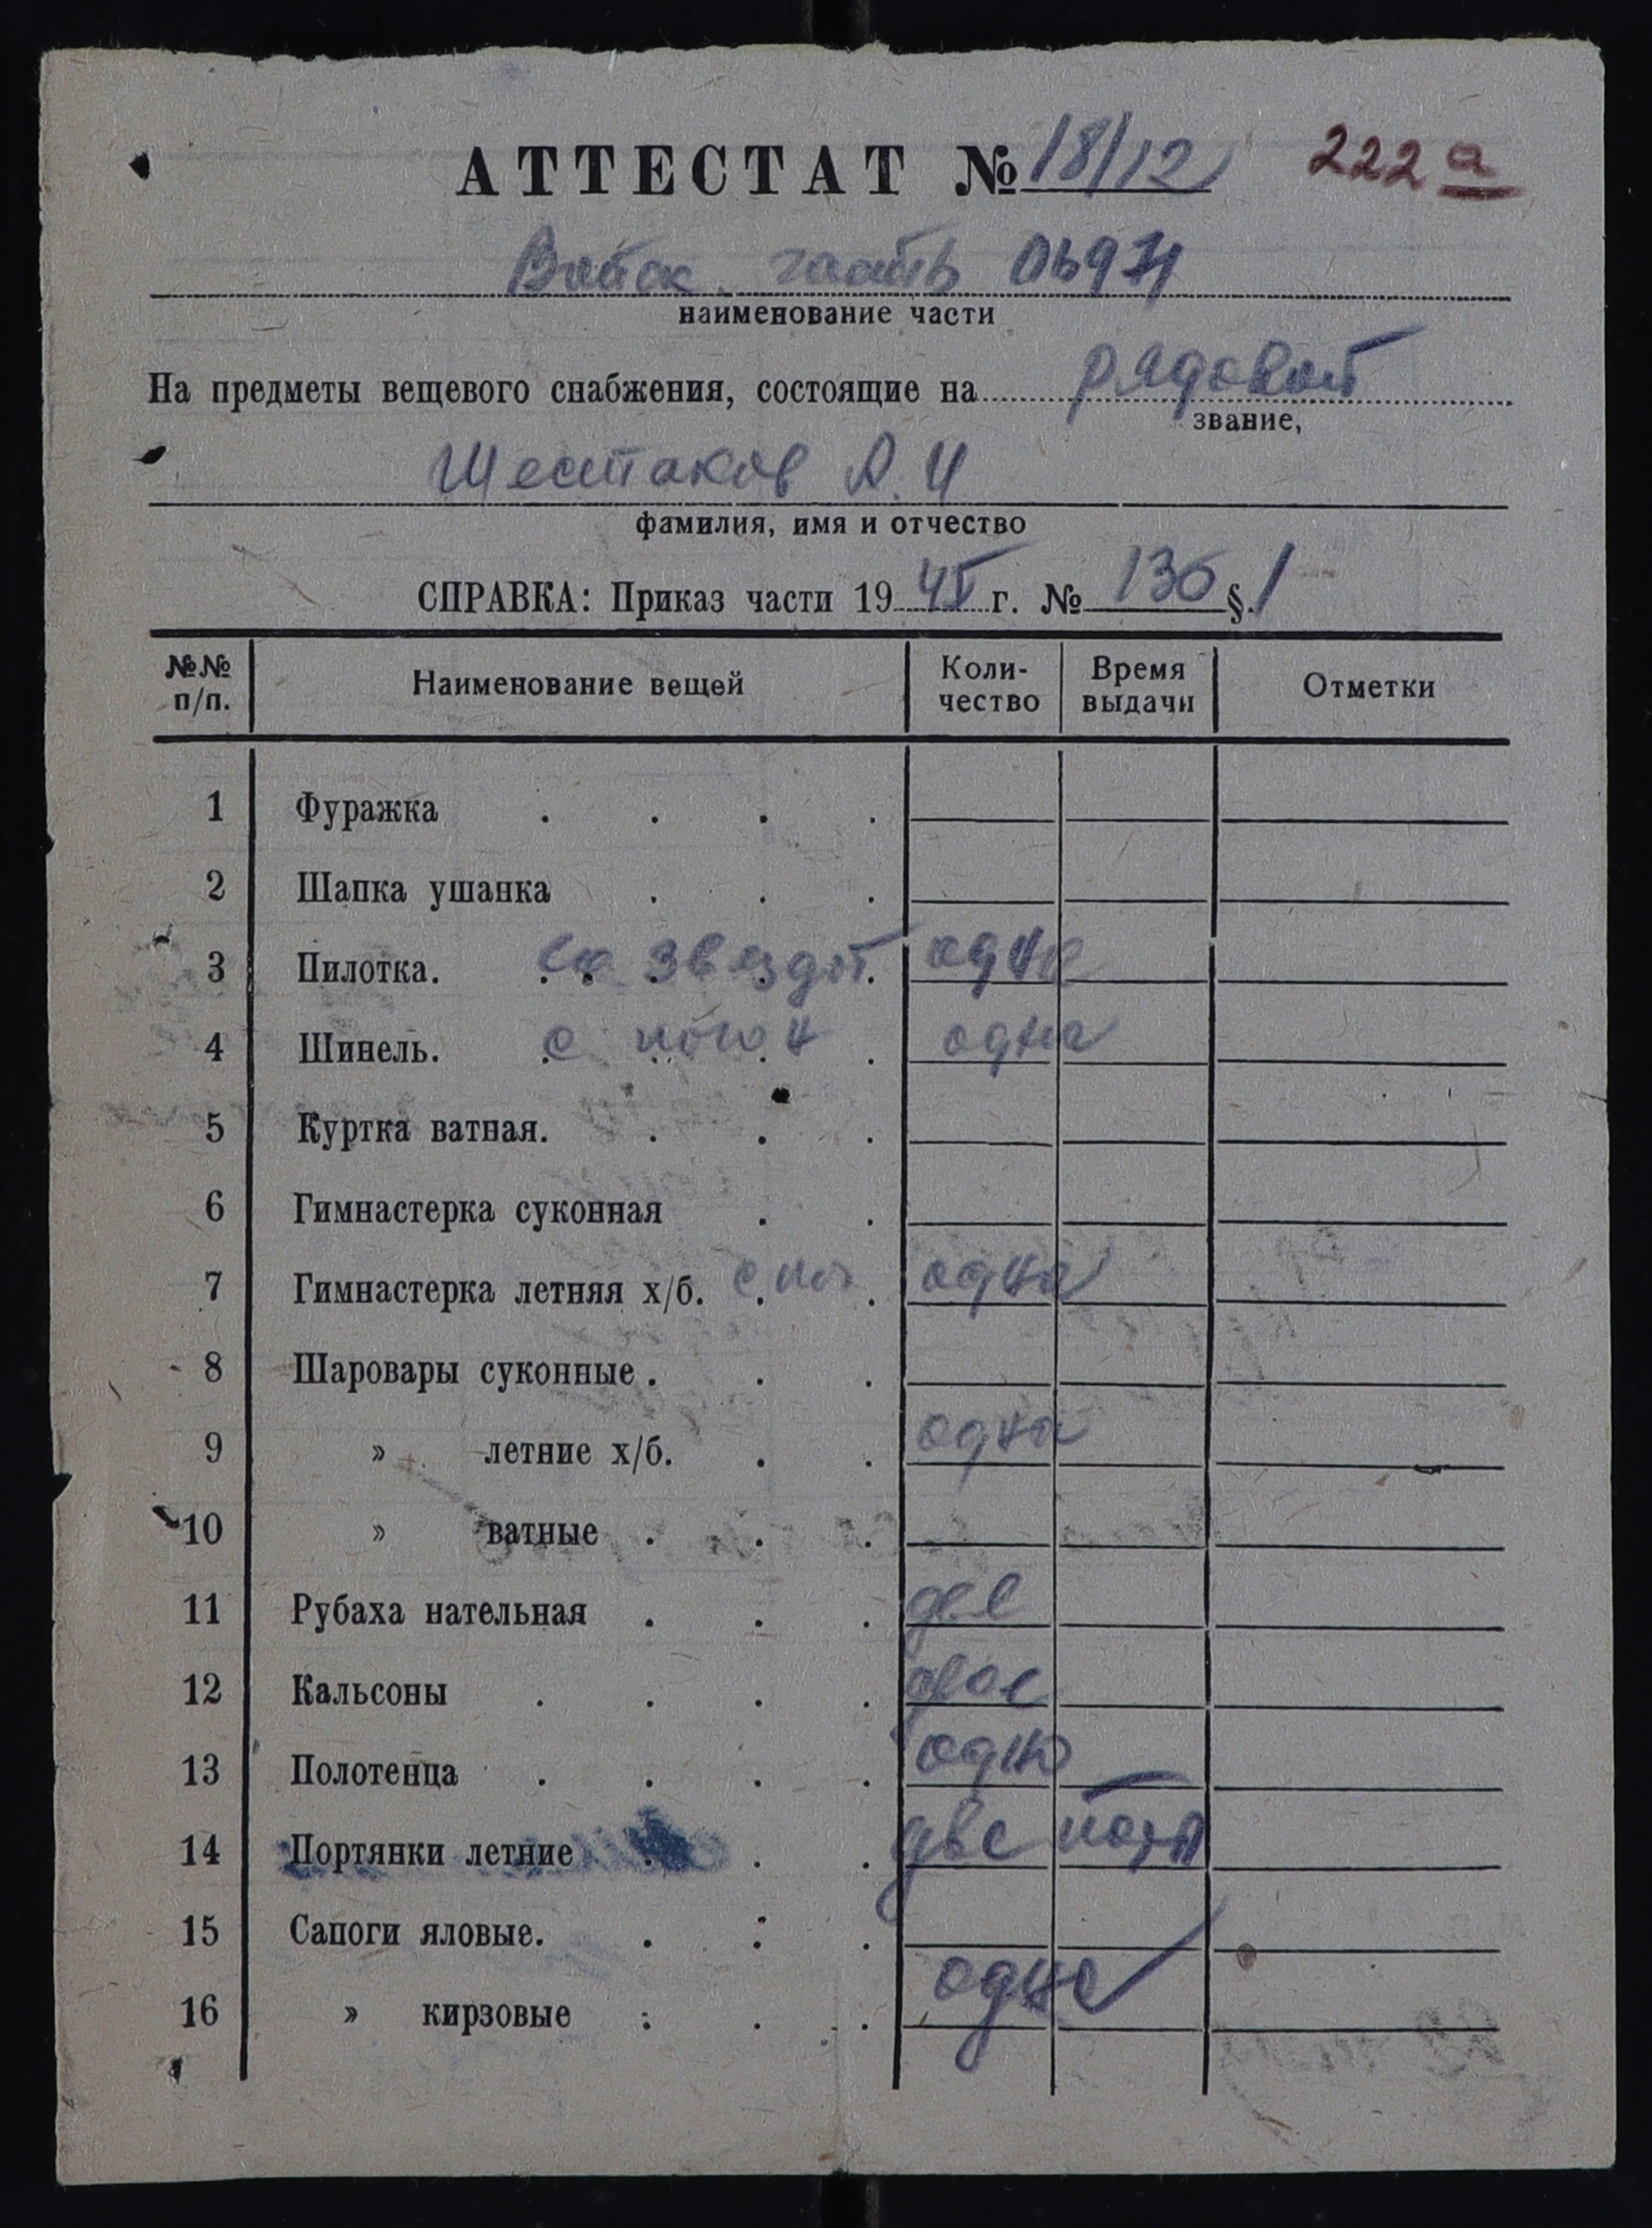 АТТЕСТАТ № 18/12 222 а
Войск. часть
наименование части
На предметы вещевого снабжения, состоящие на рядовой
звание,
Шестаков А. И
фамилия, имя и отчество
СПРАВКА: Приказ части 19 45 г. № 136 §. 1
№№ п/п. Наименование вещей Коли-чество Время выдачи Отметки
1 Фуражка
2 Шапка ушанка
3 Пилотка. со звездой одна
4 Шинель. с одна
5 Куртка ватная.
6 Гимнастерка суконная
7 Гимнастерка летняя х/б. с пог одна
8 Шаровары суконные
9 » летние х/б. одна
10 » ватные
11 Рубаха нательная две
12 Кальсоны двое
13 Полотенца одно
14 Портянки летние две
15 Сапоги яловые.
16 » кирзовые одне